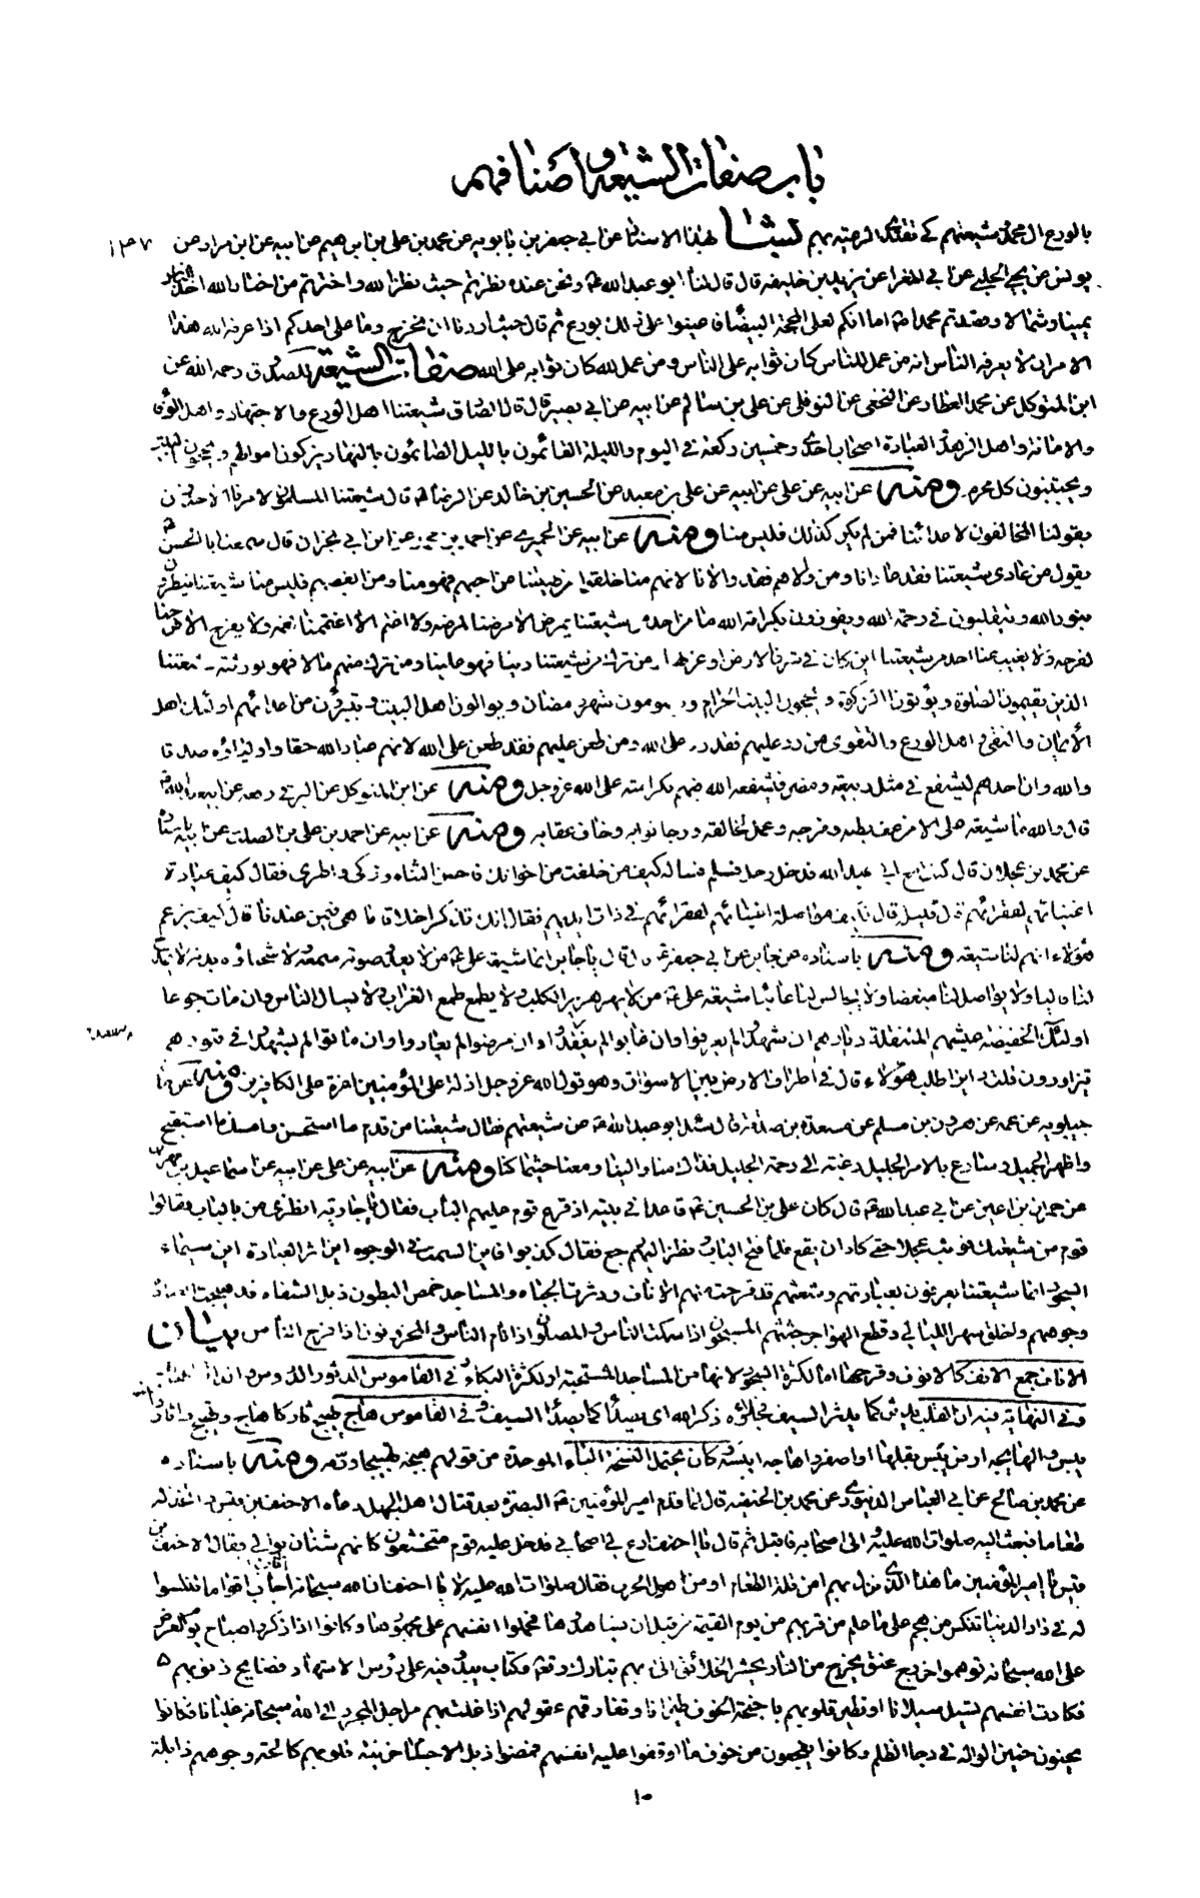 باب صفات الشيعة و اصنافهم
بالورع ال محمد شيعتهم كي تقتدى الرعية بهم بشا بهذا الاسناد عن ابي جعفر بن بابويه عن محمد بن علي بن ابراهيم عن ابيه عن ابن مراد عن
يونس عن يحيى الحلبي عن ابي المغرا عن يزيد بن خليفه قال قال لنا ابو عبد الله ع ونحن عنده نظرتم حيث نظر الله واخترتم من اختار الله اخذ الناس
يمينا وشمالا وقصدتم محمدا ص اما انكم لعلى المحجة البيضاء فاعينوا على ذلك بورع ثم قال حيث اردنا ان نخرج وما على احدكم اذا عرفه الله هذا
الامر ان لا يعرفه الناس انه من عمل للناس كان ثوابه على الناس ومن عمل لله كان ثوابه على الله صفات الشيعة للصدوق رحمه الله عن
ابن المتوكل عن محمد العطار عن النخعي عن النوفلي عن علي بن سالم عن ابيه عن ابي بصير قال قال الصادق شيعتنا اهل الورع والاجتهاد واهل الوفاء
والامانة واهل الزهد العبادة اصحاب احدى وخمسين ركعة في اليوم والليلة القائمون بالليل الصائمون بالنهار يزكون اموالهم ويحجون البيت
ويجتنبون كل محرم ومنه عن ابيه عن علي عن ابيه عن علي بن معبد عن الحسين بن خالد عن الرضا ع قال شيعتنا المسلمون لامرنا الاخذون
بقولنا المخالفون لاعدائنا فمن لم يكن كذلك فليس منا ومنه عن ابيه عن الحميري عن احمد بن محمد عن ابن ابي نجران قال سمعت ابا الحسن ع
يقول من عادى شيعتنا فقد عادانا ومن والاهم فقد والانا لانهم منا خلقوا من طينتنا من احبهم فهو منا ومن ابغضهم فليس منا شيعتنا ينظرون
بنور الله ويتقلبون في رحمة الله ويفوزون بكرامة الله ما من احد من شيعتنا يمرض الا مرضنا لمرضه ولا اغتم الا اغتممنا لغمه ولا يفرح الا فرحنا
لفرحه ولا يغيب عنا احد من شيعتنا اين كان في شرق الارض او غربها ومن ترك من شيعتنا دينا فهو علينا ومن ترك منهم مالا فهو لورثته شيعتنا
الذين يقيمون الصلوة ويؤتون الزكوة ويحجون البيت الحرام ويصومون شهر رمضان ويوالون اهل البيت ويتبرؤن من اعدائهم اولئك اهل
الايمان والتقى اهل الورع والتقوى من رد عليهم فقد رد على الله ومن طعن عليهم فقد طعن على الله لانهم عباد الله حقا واولياؤه صدقا
والله وان احدهم ليشفع في مثل ربيعة ومضر فيشفعه الله فيهم بكرامته على الله عز وجل ومنه عن ابن المتوكل عن البرقي رفعه عن ابي عبد الله ع
قال والله ما شيعة علي الا من عف بطنه وفرجه وعمل لخالقه ورجا ثوابه وخاف عقابه ومنه عن ابيه عن احمد بن علي بن الصلت عن باسناده
عن محمد بن عجلان قال كنت مع ابي عبد الله فدخل رجل فسلم فساله كيف من خلفت من اخوانك فاحسن الثناء وزكى واطرى فقال كيف عيادة
اغنيائهم لفقرائهم قال قليلة قال كيف مواصلة اغنيائهم لفقرائهم في ذات ايديهم فقال انك تذكر اخلاقا ما هي فيمن عندنا قال كيف يزعم
هؤلاء انهم لنا شيعة ومنه باسناده عن جابر عن ابي جعفر ع قال يا جابر انما شيعة علي ع من لا يعدو صوته سمعه ولا شحناؤه بدنه لا يمدح
لنا قاليا ولا يواصل لنا مبغضا ولا يجالس لنا عائبا شيعة علي ع من لا يهر هرير الكلب ولا يطمع طمع الغراب ولا يسال الناس وان مات جوعا
اولئك الخفيضة عيشهم المنتقلة ديارهم ان شهدوا لم يعرفوا وان غابوا لم يفتقدوا وان مرضوا لم يعادوا وان ماتوا لم يشهدوا في قبورهم
يتزاورون قلت واين اطلب هؤلاء قال في اطراف الارض بين الاسواق وهو قول الله عز وجل اذلة على المؤمنين اعزة على الكافرين ومنه عن
جيلويه عن عمه عن هرون بن مسلم عن مسعدة بن صدقة قال سئل ابو عبد الله ع عن شيعتهم فقال شيعتنا من قدم ما استحسن وامسك ما استقبح
واظهر الجميل وسارع بالامر الجليل رغبة الى رحمة الجليل فذاك منا والينا ومعنا حيثما كنا ومنه عن ابيه عن علي عن ابيه عن اسماعيل بن مهران
عن حمران بن اعين عن ابي عبد الله ع قال كان علي بن الحسين ع قاعدا في بيته اذ قرع قوم عليهم الباب فقال يا جارية انظري من بالباب فقالوا
قوم من شيعتك فوثب عجلا حتى كاد ان يقع فلما فتح الباب ونظر اليهم رجع فقال كذبوا فاين السمت في الوجوه اين اثر العبادة اين سيماء
السجود انما شيعتنا يعرفون بعبادتهم وشعثهم قد قرحت منهم الاناف ودثرت الجباه والمساجد خمص البطون ذبل الشفاه قد هيجت العبادة
وجوههم واخلق سهر الليالي وقطع الهواجر جثثهم المسبحون اذا سكت الناس والمصلون اذا نام الناس والمحزونون اذا فرح الناس بيان
الاناف جمع الانف كالانوف وقرحها اما لكثرة السجود لانها من المساجد المستحبة او لكثرة البكاء وفي القاموس الدثور الدروس
وفي النهاية فيه ان القلب يدثر كما يدثر السيف فجلاؤه ذكر الله اي يصدأ كما يصدأ السيف وفي القاموس هاج يهيج ثار كاهتاج وتهيج واثار
يبس والهايجة ارض يبس بقلها او اصفر واهاجه ايبسه وكان يحتمل النسخة الباء الموحدة من قولهم هبجه تهبيجا ورمه ومنه باسناده
عن محمد بن صالح عن ابي العباس الدينوري عن محمد بن الحنفية قال لما قدم امير المؤمنين ع البصرة بعد قتال اهل الجمل دعاه الاحنف بن قيس واتخذ له
طعاما فبعث اليه صلوات الله عليه والى اصحابه فاقبل ثم قال يا احنف ادع لي اصحابي فدخل عليه قوم متخشعون كانهم شنان بوالي فقال الاحنف بن
قيس يا امير المؤمنين ما هذا الذي نزل بهم امن قلة الطعام او من هول الحرب فقال صلوات الله عليه لا يا احنف ان الله سبحانه احب اقواما تنسكوا
له في دار الدنيا تنسك من هجم على ما علم من قربهم من يوم القيمة من قبل ان يشاهدوها فحملوا انفسهم على مجهودها وكانوا اذا ذكروا صباح يوم العرض
على الله سبحانه توهموا خروج عنق يخرج من النار يحشر الخلائق الى ربهم تبارك وتعالى وكتاب يبدو فيه على رؤس الاشهاد فضايح ذنوبهم
فكادت انفسهم تسيل سيلانا او تطير قلوبهم باجنحة الخوف طيرانا وتفارقهم عقولهم اذا غلت بهم مراجل المجرد الى الله سبحانه غليانا فكانوا
يحنون حنين الواله في دجا الظلم وكانوا يفجعون من خوف ما اوقفوا عليه انفسهم فمضوا ذبل الاجسام حزينة قلوبهم كالحة وجوههم ذابلة
١٠